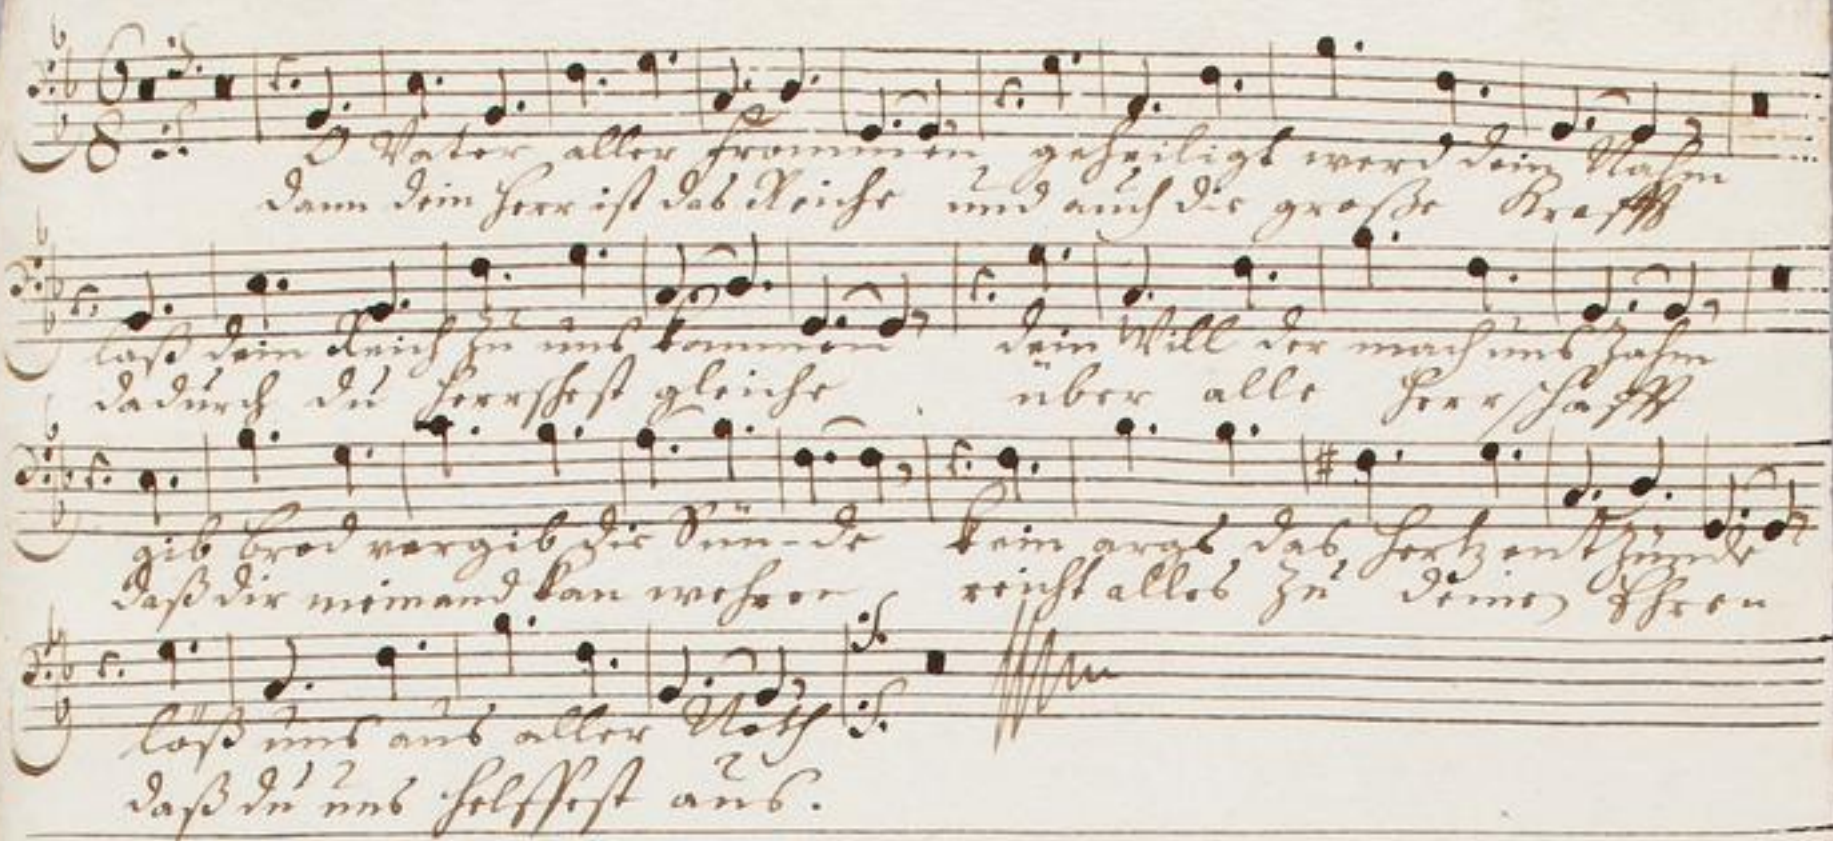 O Vater aller frommen geheiligt werd dein Nahm
dann dein Herr ist das Reiche und auch die große Krafft
laß dein Reich zu uns kommen dein Will der mach uns zahm
dadurch du herrschest gleiche über alle Herrschafft
gib brod vergib die Sün-de kein args das hertz entzünde
daß dir niemand kan wehren reicht alles zu deinen Ehren
löß uns aus aller Noth
daß du uns helffest aus.